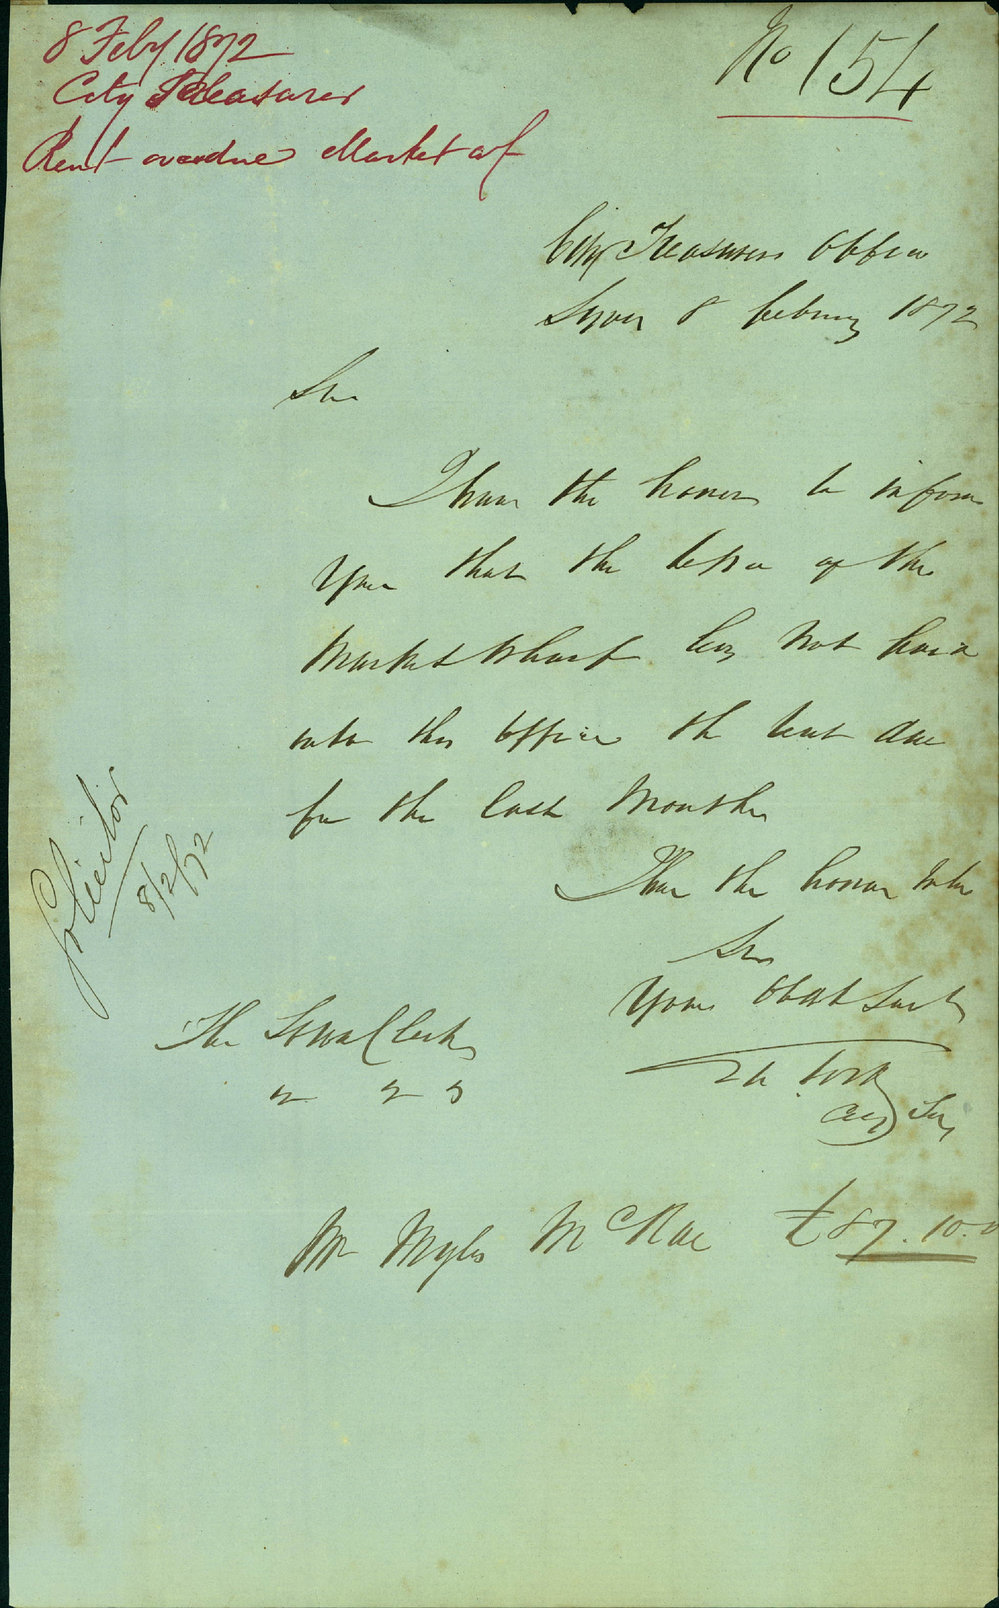 8 Feby 1872
City Treasurer
Rent overdue Market whf
No 154
City Treasurers Office
Sydney 8 February 1872
Sir
I have the honor to inform
you that the lessee of the
Market Wharf has not paid
into this office the rent due
for the last Month
I have the honor to be
Sir
Your Obedt Servt
City Tr
Solicitor
8/2/72
The Town Clerk
Mr Myles McRae £87.10.0